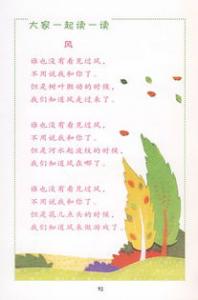 大家一起读一读
风
谁也没有看见过风，
不用说我和你了。
但是树叶颤动的时候，
我们知道风走过来了。
谁也没有看见过风，
不用说我和你了。
但是河水起波纹的时候，
我们知道风在哪了。
谁也没有看见过风，
不用说我和你了。
但是花儿点头的时候，
我们知道风来做游戏了。
92